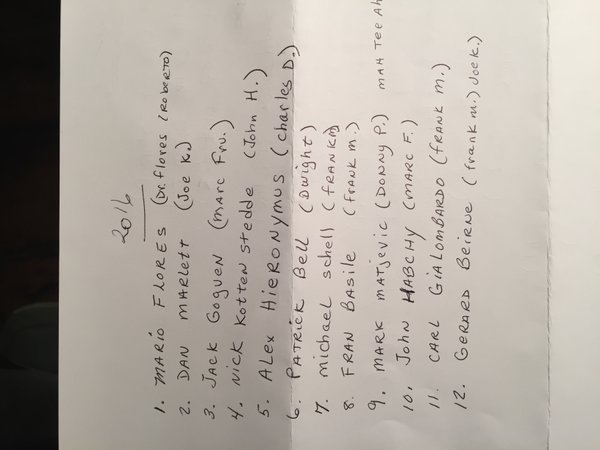 2016
1. MARIO FLORES (Dr. flores (ROBERTO)
2. DAN MARlett (Joe K.)
3. JACK GOguen (MARC FRU.)
4. NICK Kotten stedde (John H.)
5. Alex HIERONYMUS (charles D.)
6. PATRICK Bell (Dwight)
7. michael schell (FRANK M)
8. FRAN BASILE (FRANK m.)
9. MARK MATJEVIC (DONNY P.) MAH Tee Ah
10. JOHN HABCHY (MARC F.)
11. CARL GIALOMBARDO (FRANK m.)
12. GERARD BEIRNE (frank m.) Joe K.)